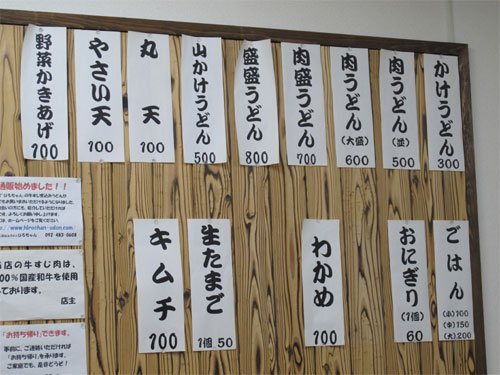 かけうどん
300
肉うどん
(並)
500
肉うどん
(大盛)
600
肉盛うどん
700
盛盛うどん
800
山かけうどん
500
丸天
100
やさい天
100
野菜かきあげ
100
ごはん
(小)100
(中)150
(大)200
おにぎり
(1個)
60
わかめ
100
生たまご
1個 50
キムチ
100
通販始めました!!
092 483 0608
当店の牛すじ肉は、
100%国産和牛を使用
しております。
店主
「お持ち帰り」できます。
事前に、ご連絡いただければ
「お持ち帰り」を承ります。
ご家庭でも、是非どうぞ!